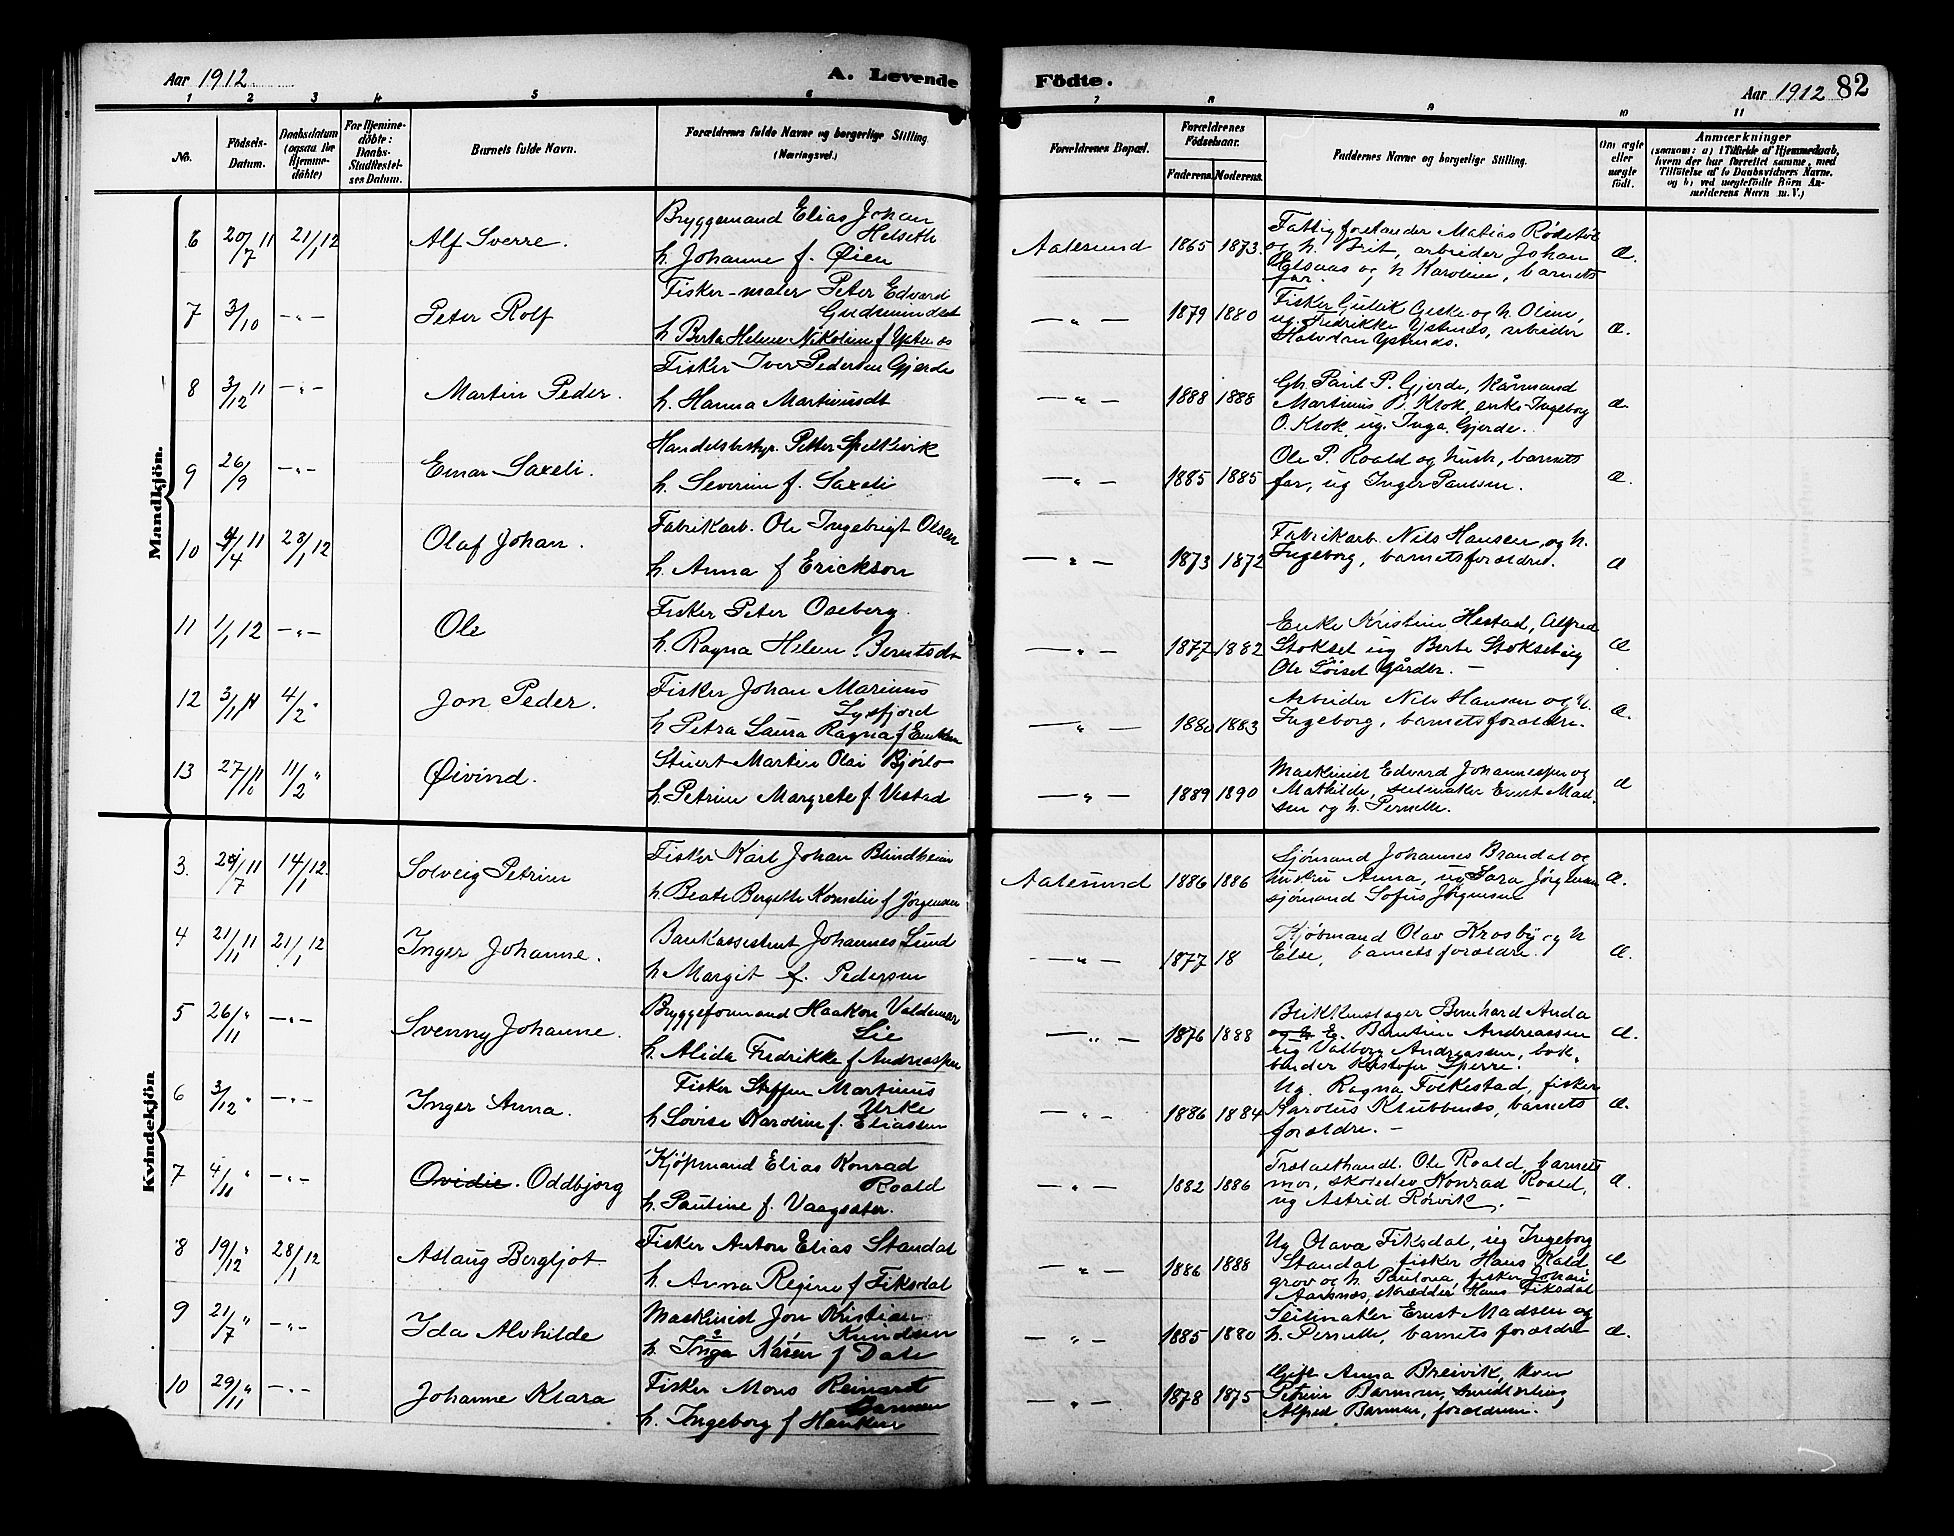 Aar 1912
A. Levende
Födte.
Aar 1912
82
1 2 3 4 5 6 7 8 9 10 11
No.
Födsels-
Datum.
Daabsdatum
(ogsaa for
Hjemme-
döbte)
For Hjemme-
döbte:
Daabs-
Stadfæstel-
ses Datum.
Barnets fulde Navn.
Forældrenes fulde Navne og borgerlige Stilling
(Næringsvei.)
Forældrenes Bopæl.
Forældrenes
Födselsaar.
Faderens. Moderens.
Faddernes Navne og borgerlige Stilling.
Om ægte
eller
uægte
født.
Anmærkninger
(saasom: a) i Tilfælde af Hjemmedaab,
hvem der har forrettet samme, med
Tilföielse af to Daabsvidners Navne.
og b) ved uægtefödte Börn An-
melderens Navn m. V.)
Mandkjön.
6 20/7 11 21/1 12 Alf Sverre.
Bryggemand Elias Johan
Helseth
h. Johanne f. Øien
Aalesund 1865 1873.
Fattigforstander Matias Rødset
og h. Brit, arbeider Johan
Elsaas og h Karoline, barnets
far.
Æ.
7 3/10 -"- Peter Rolf
Fisker-maler Peter Edvard
Gudmundset
h Berta Helene Nikoline f Ystenes
-"- 1879 1880
Fisker Gullik Giske og h. Oline,
ug. Fredrikke Ystenes, arbeider
Halvdan Ystenes.
Æ.
8 3/12 11 -"- Martin Peder.
Fisker Iver Pedersen Gjerde
h. Hanna Martinusdt
-"- 1888 1888
Gb. Paul P. Gjerde, kårmand
Martinus B. Krok, enke Ingeborg
O. Krok, ug. Inga Gjerde.
Æ.
9 26/9 -"- Einar Saxeli.
Handelsbestyr. Petter Spelkevik
h. Severine f. Saxeli
-"- 1885 1885
Ole P. Roald og hustr, barnets
far, ug Inger Paulsen.
Æ.
10 4/4 11 28/1 12 Olaf Johan.
Fabrikarb. Ole Ingebrigt Olsen
h. Anna f Erickson
-"- 1873 1872
Fabrikarb. Nils Hansen, og h.
Ingeborg, barnets forældre.
Æ
11 1/1 12 -"- Ole
Fisker Peter Oseberg.
h. Ragna Helene Berntsdt
-"- 1877 1882
Enke Kristine Hestad, Alfred
Stokset ug Berte Stokset ug
Ole Løiset Gårder. -
Æ
12 3/11 11 4/2 " Jon Peder.
Fisker Johan Marinus
Sysfjord
h Petra Laura Ragna f Eriksen
-"- 1880 1883
Arbeider Nils Hansen og h.
Ingeborg, barnets forældre.
Æ.
13 27/10 11 11/2 " Øivind.
Stuert Martin Olai Bjørlo
h. Petrine Margrete f Vestad
-"- 1889 1890
Maskinist Edvard Johannessen og
Mathilde, seilmaker Ernst Mad-
sen og h. Pernelle.
Æ
Kvindekjön
3. 29/7 11 14/1 12. Solveig Petrine
Fisker Karl Johan Blindheim
h. Beate Bergitte Kornelie f Jørgensen
Aalesund 1886 1886
Sjømand Johannes Brandal og
hustru Anna, ug Sara Jørgensen
sjømand Sofus Jørgensen
Æ.
4 21/11 11 21/1 12 Inger Johanne.
Bankassistent Johannes Lund
h Margit f. Pedersen
-"- 1877 18
Kjøbmand Olav Krosby og h
Else, barnets forældre.
Æ.
5 26/11 " -"- Svenny Johanne.
Bryggeformand Haakon Valdemar
Lie
h. Alida Fredrikke f Andreassen
-"- 1876 1888
Blikkenslager Bernhard Anda
og h Eg. Berntine Andreassen
ug Valborg Andreassen, bok-
binder Kristofer Sperre.
Æ.
6 3/12 " -"- Inger Anna.
Fisker Steffen Martinus
Urke
h Lovise Karoline f. Eliassen
-"- 1886 1884
Ug. Ragna Folkestad, fisker
Karolus Klubbenes, barnets
forældre. -
Æ.
7 4/10 " -"- Ovidie. Oddbjørg
Kjøpmand Elias Konrad
Roald
h. Pauline f. Vaagsæter.
-"- 1882 1886
Trælasthandl. Ole Roald, barnets
mor, skoleelev Konrad Roald,
ug Astrid Rørvik. -
Æ.
8 19/12 " 28/1 12 Aslaug Bergljot
Fisker Anton Elias Standal
h. Anna Regine f Fiksdal
-"- 1886 1888
Ug Olava Fiksdal, ug Ingeborg
Standal, fisker Hans Kald
grov og h. Paulona, fisker Johan
Aarsnes, skrædder Hans Fiksdal
Æ
9 21/7 " -"- Ida Alvhilde
Maskinist Jon Kristian
Knudsen
h. Inga Nåren f Dale
-"- 1885 1880
Seilmaker Ernst Madsen og
h. Pernelle, barnets forældre
Æ.
10 29/11 " -"- Johanne Klara
Fisker Mons Reinardt
Barmen
h. Ingeborg f Hanken
-"- 1878 1875
Gift Anna Breivik, kone
Petrine Barmen, smedlærling
Alfred Barmen, forældrene.